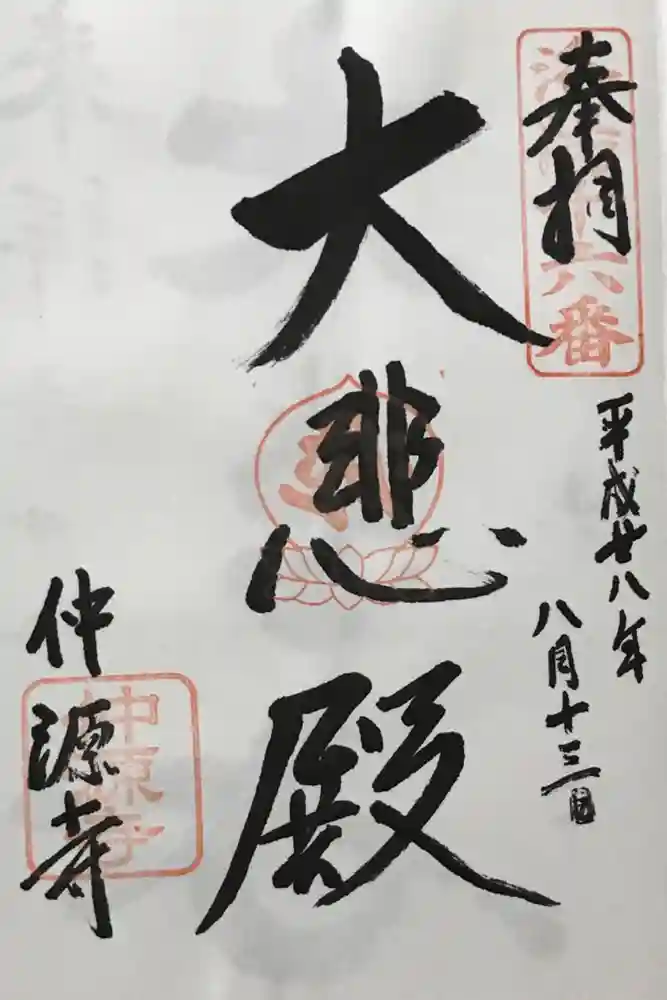 奉拝
六番
平成廿八年
八月十三日
大悲殿
仲源寺
仲源寺